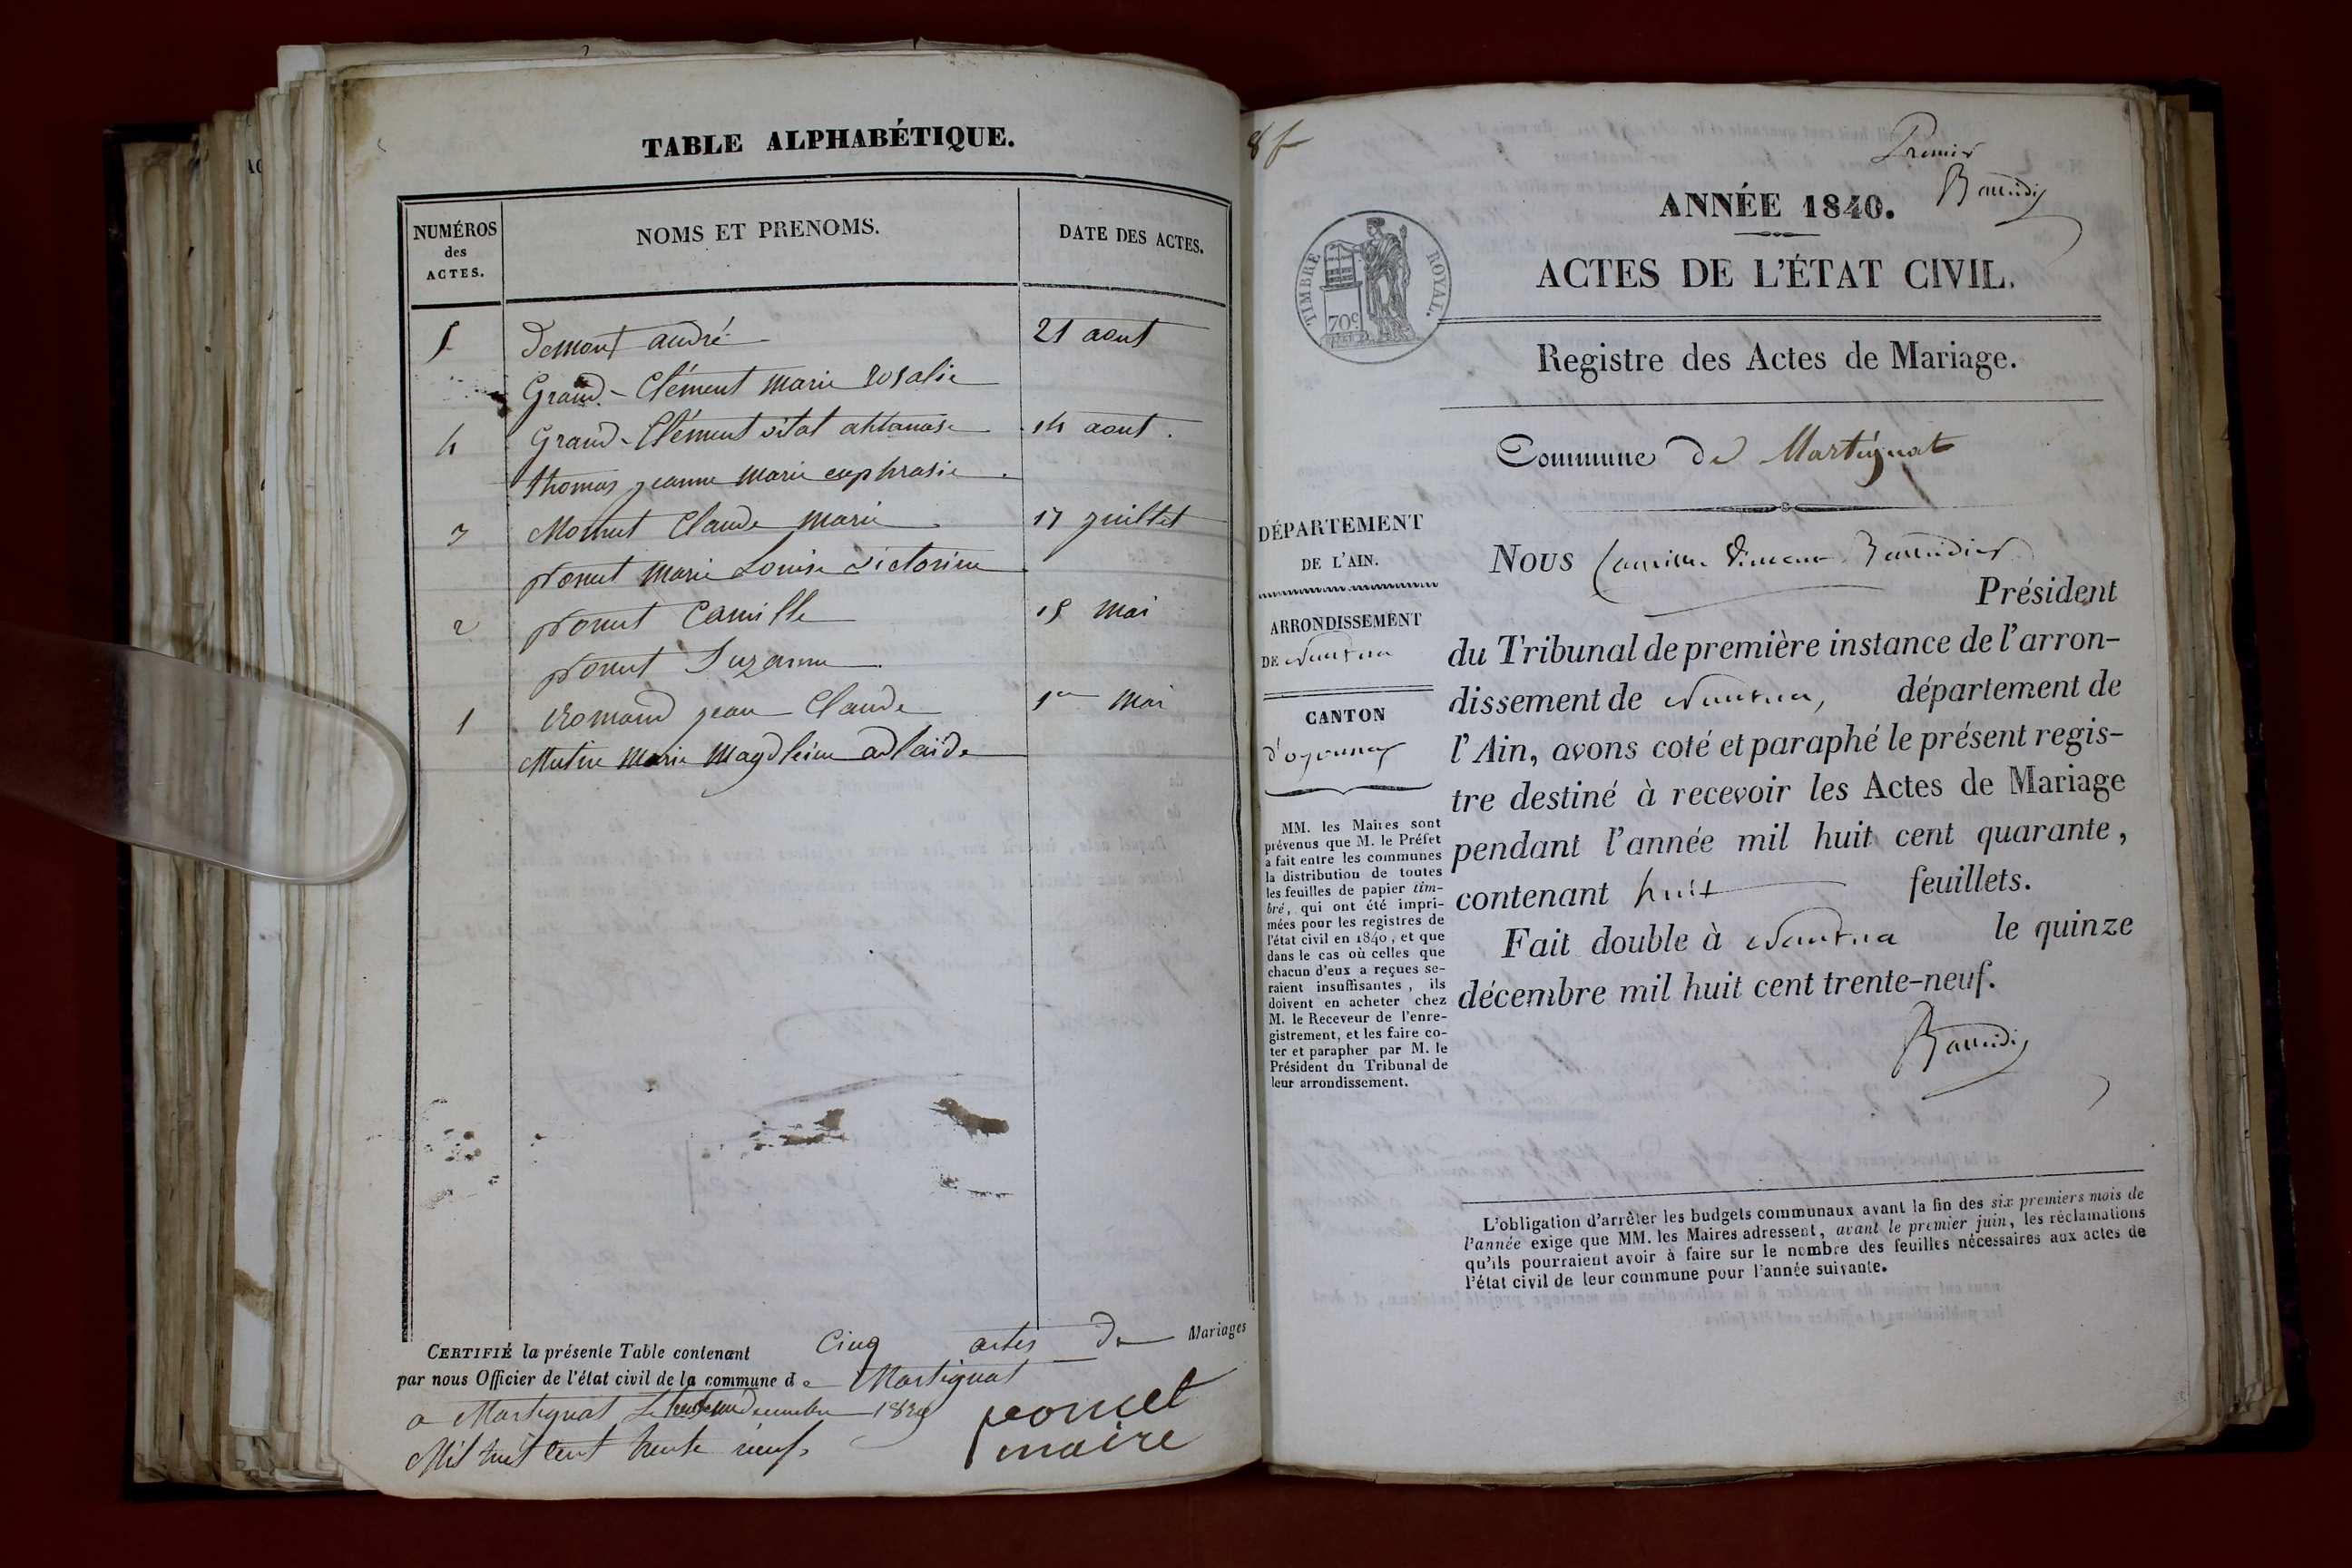 TABLE ALPHABÉTIQUE.
NUMÉROS des ACTES.
NOMS ET PRENOMS.
DATE DES ACTES.
5 Demont andré 21 aout
Grand-Clément marie rosalie
4 Grand-Clément vital athanase 14 aout.
thomas jeanne marie euphrasie
3 Monnet Claude marie 17 juillet
poncet marie Louise victorine
2 poncet Camille 15 mai
poncet Suzanne
1 Romand jean Claude 1er mai
Mutin marie magdleine adlaïde
CERTIFIÉ la présente Table contenant Cinq actes de Mariages
par nous Officier de l'état civil de la commune de Martignat
a Martignat Le decembre 1839
Mil huit cent trente neuf.
poncet
maire
8 f
Premier
Baudin
ANNÉE 1840.
TIMBRE ROYAL.
70c
ACTES DE L'ÉTAT CIVIL.
Registre des Actes de Mariage.
Commune de Martignat
DÉPARTEMENT
DE L'AIN.
ARRONDISSEMENT
DE Nantua
CANTON
d'oyonnax
MM. les Maires sont
prévenus que M. le Préfet
a fait entre les communes
la distribution de toutes
les feuilles de papier tim-
bré, qui ont été impri-
mées pour les registres de
l'état civil en 1840, et que
dans le cas où celles que
chacun d'eux a reçues se-
raient insuffisantes, ils
doivent en acheter chez
M. le Receveur de l'enre-
gistrement, et les faire co-
ter et parapher par M. le
Président du Tribunal de
leur arrondissement.
Nous Camille
Président
du Tribunal de première instance de l'arron-
dissement de Nantua, département de
l'Ain, avons coté et paraphé le présent regis-
tre destiné à recevoir les Actes de Mariage
pendant l'année mil huit cent quarante,
contenant huit feuillets.
Fait double à Nantua le quinze
décembre mil huit cent trente-neuf.
L'obligation d'arrêter les budgets communaux avant la fin des six premiers mois de
l'année exige que MM. les Maires adressent, avant le premier juin, les réclamations
qu'ils pourraient avoir à faire sur le nombre des feuilles nécessaires aux actes de
l'état civil de leur commune pour l'année suivante.